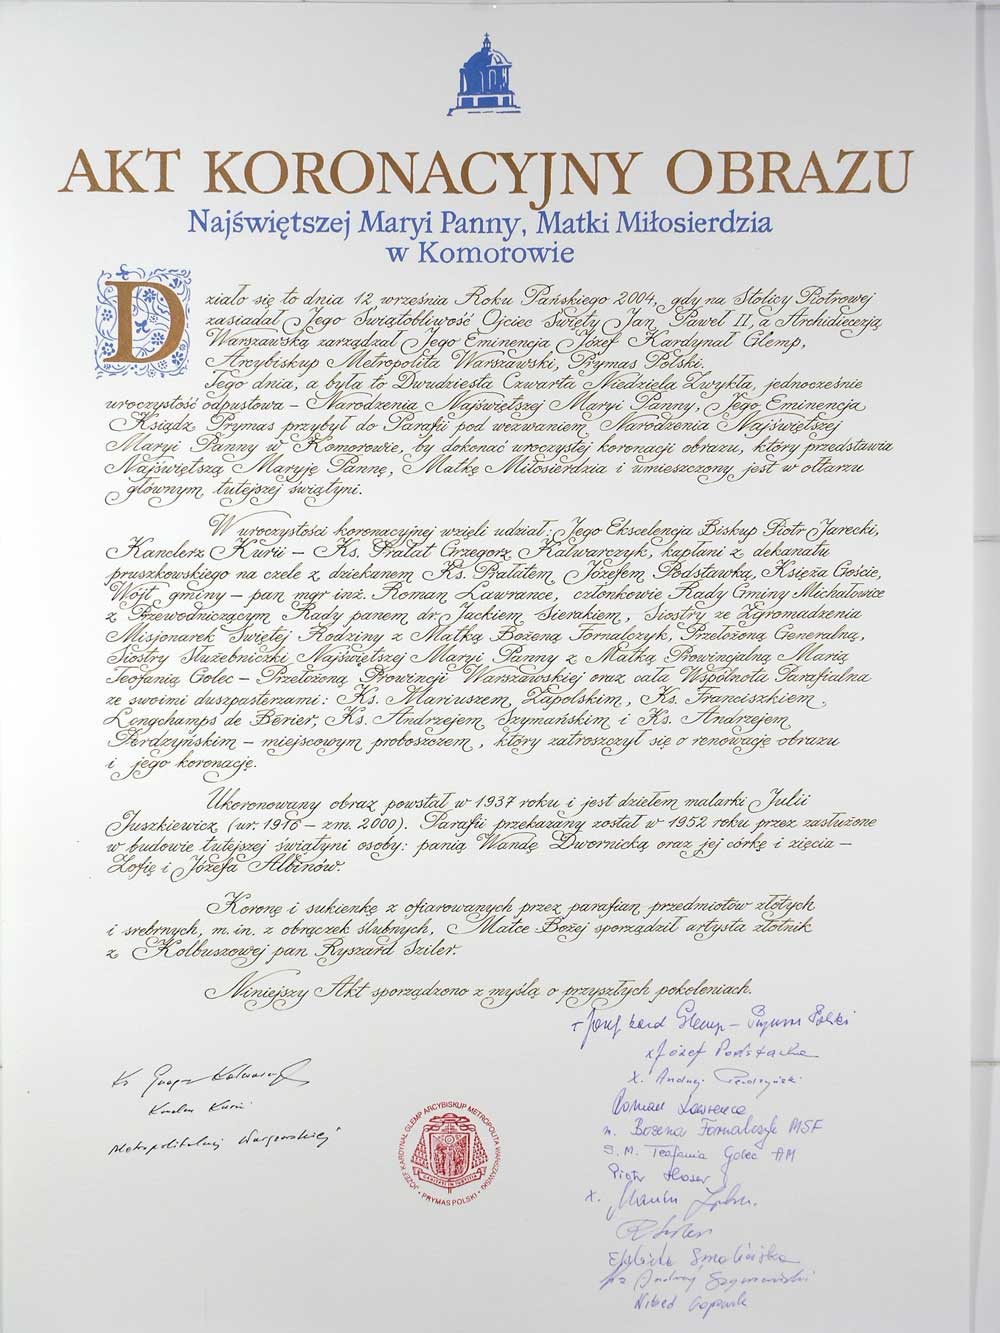 AKT KORONACYJNY OBRAZU
Najświętszej Maryi Panny, Matki Miłosierdzia
w Komorowie
Działo się to dnia 12 września Roku Pańskiego 2004, gdy na Stolicy Piotrowej
zasiadał Jego Świątobliwość Ojciec Święty Jan Paweł II, a Archidiecezją
Warszawską zarządzał Jego Eminencja Józef Kardynał Glemp,
Arcybiskup Metropolita Warszawski, Prymas Polski.
Tego dnia, a była to Dwudziesta Czwarta Niedziela Zwykła, jednocześnie
uroczystość odpustowa – Narodzenia Najświętszej Maryi Panny, Jego Eminencja
Ksiądz Prymas przybył do Parafii pod wezwaniem Narodzenia Najświętszej
Maryi Panny w Komorowie, by dokonać uroczystej koronacji obrazu, który przedstawia
Najświętszą Maryję Pannę, Matkę Miłosierdzia i umieszczony jest w ołtarzu
głównym tutejszej świątyni.
W uroczystości koronacyjnej wzięli udział: Jego Ekscelencja Biskup Piotr Jarecki,
Kanclerz Kurii – Ks. Prałat Grzegorz Kalwarczyk, kapłani z dekanatu
pruszkowskiego na czele z dziekanem Ks. Prałatem Józefem Podstawką, Księża Goście,
Wójt gminy – pan mgr inż. Roman Lawrance, członkowie Rady Gminy Michałowice
z Przewodniczącym Rady panem dr. Jackiem Sierakiem, Siostry ze Zgromadzenia
Misjonarek Świętej Rodziny z Matką Bożeną Fornalczyk, Przełożoną Generalną,
Siostry Służebniczki Najświętszej Maryi Panny z Matką Prowincjalną Marią
Teofanią Golec – Przełożoną Prowincji Warszawskiej oraz cała Wspólnota Parafialna
ze swoimi duszpasterzami: Ks. Mariuszem Zapolskim, Ks. Franciszkiem
Longchamps de Bérier, Ks. Andrzejem Szymańskim i Ks. Andrzejem
Perdzyńskim – miejscowym proboszczem, który zatroszczył się o renowację obrazu
i jego koronację.
Ukoronowany obraz powstał w 1937 roku i jest dziełem malarki Julii
Juszkiewicz (ur. 1916 – zm. 2000). Parafii przekazany został w 1952 roku przez zasłużone
w budowie tutejszej świątyni osoby: panią Wandę Dwornicką oraz jej córkę i zięcia –
Zofię i Józefa Albinów.
Koronę i sukienkę z ofiarowanych przez parafian przedmiotów złotych
i srebrnych, m.in. z obrączek ślubnych, Matce Bożej sporządził artysta złotnik
z Kolbuszowej pan Ryszard Sziler.
Niniejszy Akt sporządzono z myślą o przyszłych pokoleniach.
+ Józef kard Glemp – Prymas Polski
x Józef Podstawka
X. Andrzej Perdzyński
Ks Grzegorz Kalwarczyk
Kanclerz Kurii
Metropolitalnej Warszawskiej
JÓZEF KARDYNAŁ GLEMP ARCYBISKUP METROPOLITA WARSZAWSKI • PRYMAS POLSKI •
Roman Lawrence
m. Bożena Fornalczyk MSF
S.M. Teofania Golec AM
Piotr
X.
Elżbieta Smolińska
ks Andrzej Szymański